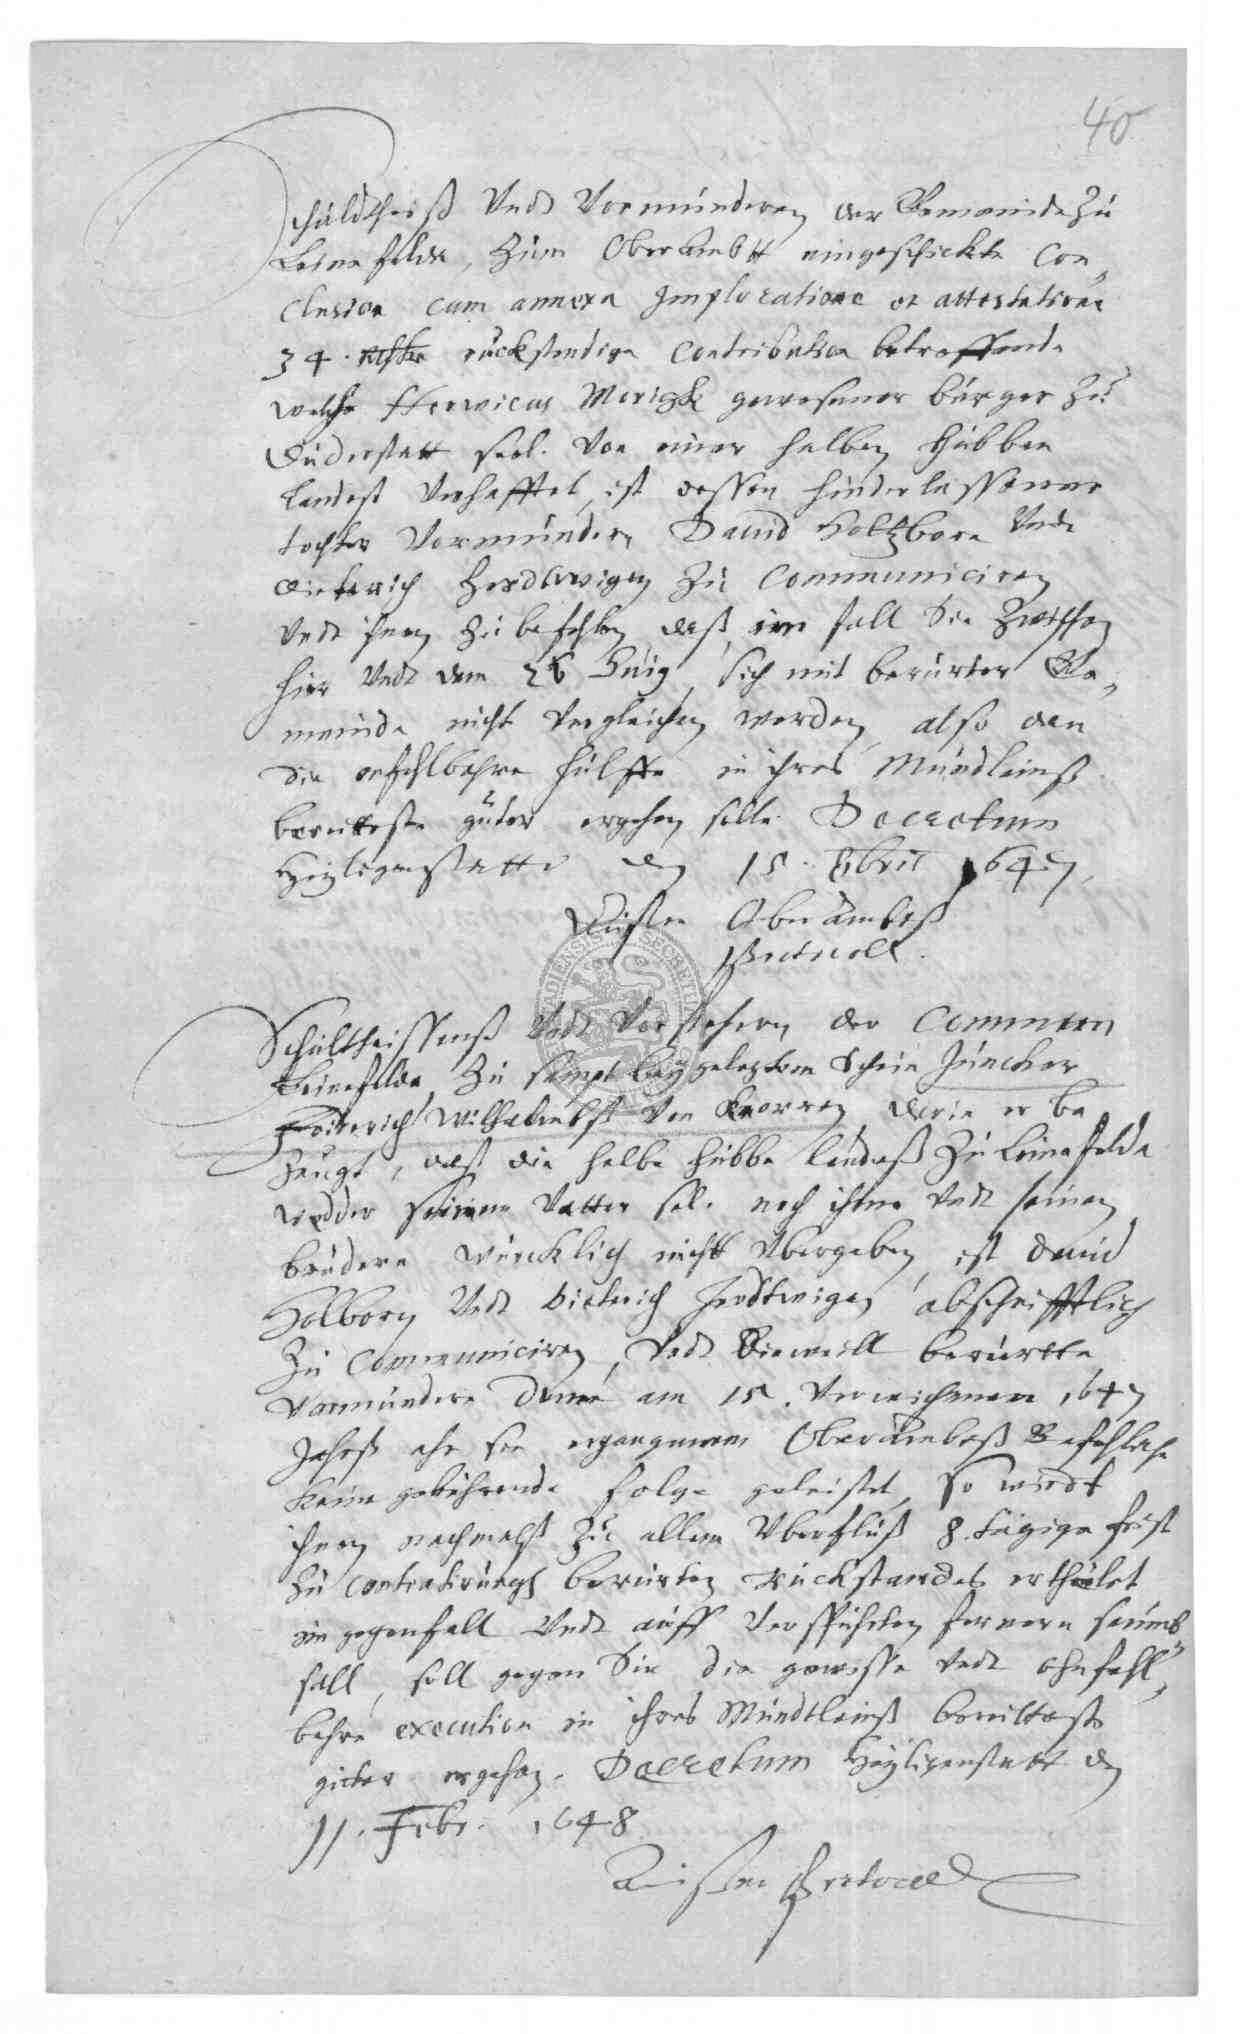 40
Schuldtheiß Undt Vormünderen der Gemeinde Zu
Leinefelde, Zum Oberambtt eingeschickte Con„
clusion cum annexa Imploratione et attestatione
34 rthlr rückstendige Contribution betreffende
welche Herwicus Merigk gewesener bürger Zu
Duderstatt seel. von einer halben Hübben
Landeß Verhafftet, ist dessen hinderlassener
tochter Vormündern David Holtzborn Undt
Dieterich Herdtwigen Zu Communiciren
Undt ihnen Zu befehlen, daß im fall Sie Zwischen
hier Undt dem 26 Huig, sich mit berürter Ge„
meinde nicht Vergleichen werden, also dan
die ohnfehlbahre hülffe in ihres Mündleins
bereitteste güter ergehen solle Decretum
Heyligenstatt den 15. 1647,
Oberambtß
Protocoll.
Schultheissenß Undt Vorstehern der Commun
Leinefelde Zu sampt beygelegtem Schein Juncker
Friderich Wilhelmbß Von Knorren, darin er be
Zeugt, daß die halbe hübbe landeß Zu Leinefelde
wedder seinem Vatter sel. noch ihme Undt seinen
brüdern würcklich nicht Vbergeben, ist David
Holborn Undt Dieterich Herdtwigen abschrifftlich
Zu Communiciren, Undt Dieweill berürtte
Vormündere dem am 15. Verwichenen 1647
Jahrß ahn sie ergangenem Oberambtß Befehlche
Keine gebührende folge geleistet, So wirdt
ihnen nachmalß Zu allem Vberfluß 8 tägige frist
Zu berürten rückstandes ertheilet
im gegenfall Undt auff Verspührten fernern seumb„
fall, soll gegen Sie die gewisse Undt ohnfehl„
bahre execution in ihres Mündtleinß bereiteste
güeter ergehen. Decretum Heyligenstatt den
11. Febr. 1648
Protocoll